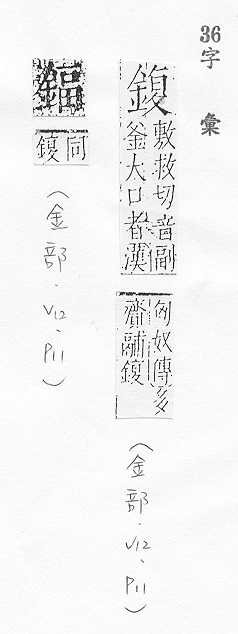 36字彙
鍑
敷救切音副
釜大口者漢
匈奴傳多
齎鬴鍑
(金部.V12、P11)
鍢
同
鍑
(金部.V12、P11)